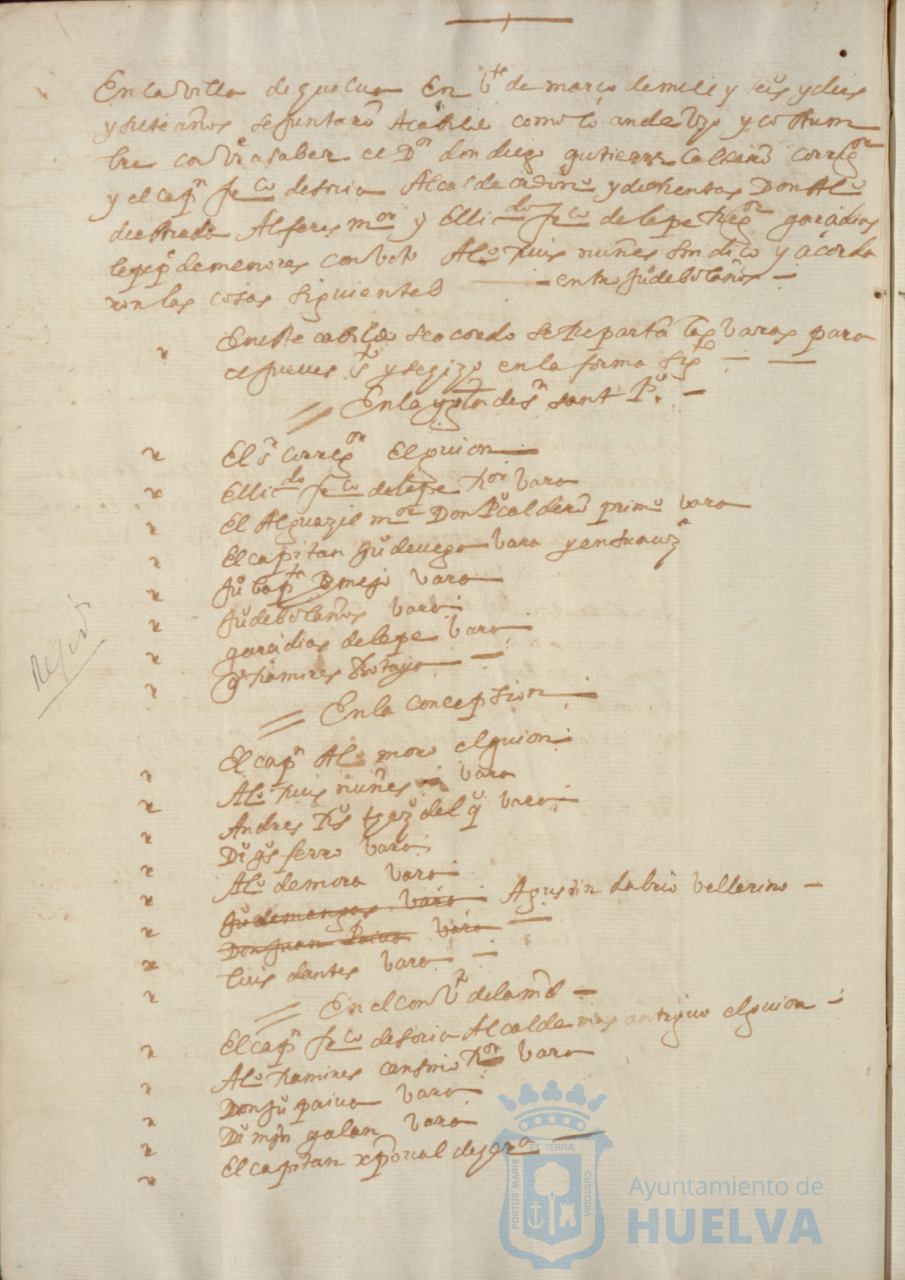 En la villa de guelua En bte de março de mill y sis y dies
y siete años se juntaro A cabildo como lo an de vzo y costum
bre conbiene a saber el Dor don diego gutierrez calderō corregor
y el capn fco de soria Alcalde ordino y de sientas Don Alo
de estrada Alferes mor y Ellido fco de lepe Regor garcidias
lepe pe de menores con boto Alo Ruis nuñes sindico y acorda
ron las cosas siguientes entro Ju de bolaños
En este cabildo se acordo se Reparta las varas para
el jueves sto y se hizo en la forma sigte
En la yglia de sr sant Po
El sr corregor El guion
Ellido fco de lepe Ror vara
El Alguazil mor Don Po calderō primo vara
El capitan Ju de vega vara y en su auza
Ju bapta Bmejo vara
Ju de bolaños vara
garcidias de lepe vara
Go Ramires
En la concepsion
El capn Alo moro el guion
Alo Ruis nuñes vara
Andres Rs del po vara
Do gs ferro vara
Alo de mora vara
Ju de mangas vara Agustin dabrio vellerino
Don Juan Paiva vara
Luis dantes vara
En el convto de la md
El capn fco de soria Alcalde mas antiguo el guion
Alo Ramires cansino Ror vara
Don Ju paiva vara
Do mjn galan vara
El capitan xpoval
Ayuntamiento de
HUELVA
PORTUS MARIS
ET TERRAE
CUSTODIA